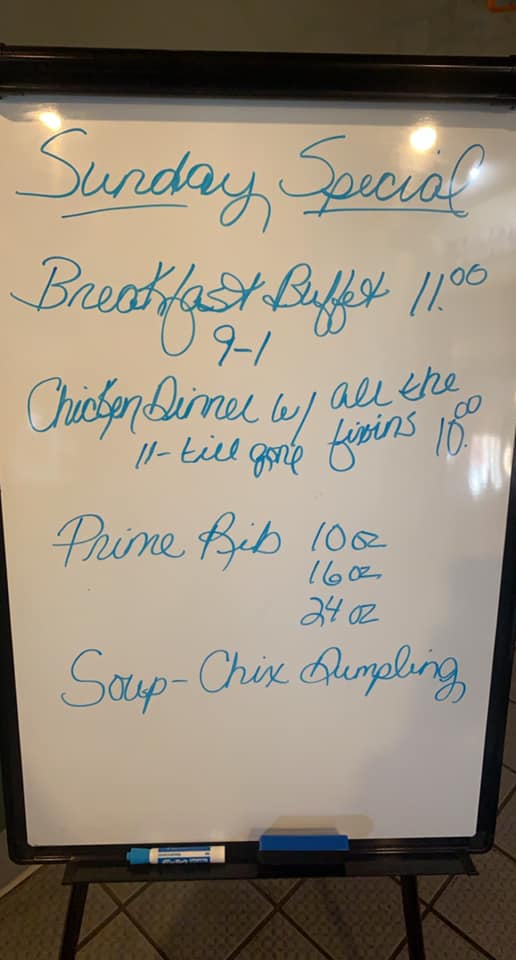 Sunday Special
Breakfast Buffet 11.00
9-1
Chicken Dinner w/ all the
11- till gone fixins 10.00
Prime Rib 10 oz
16 oz
24 oz
Soup- Chix Dumpling